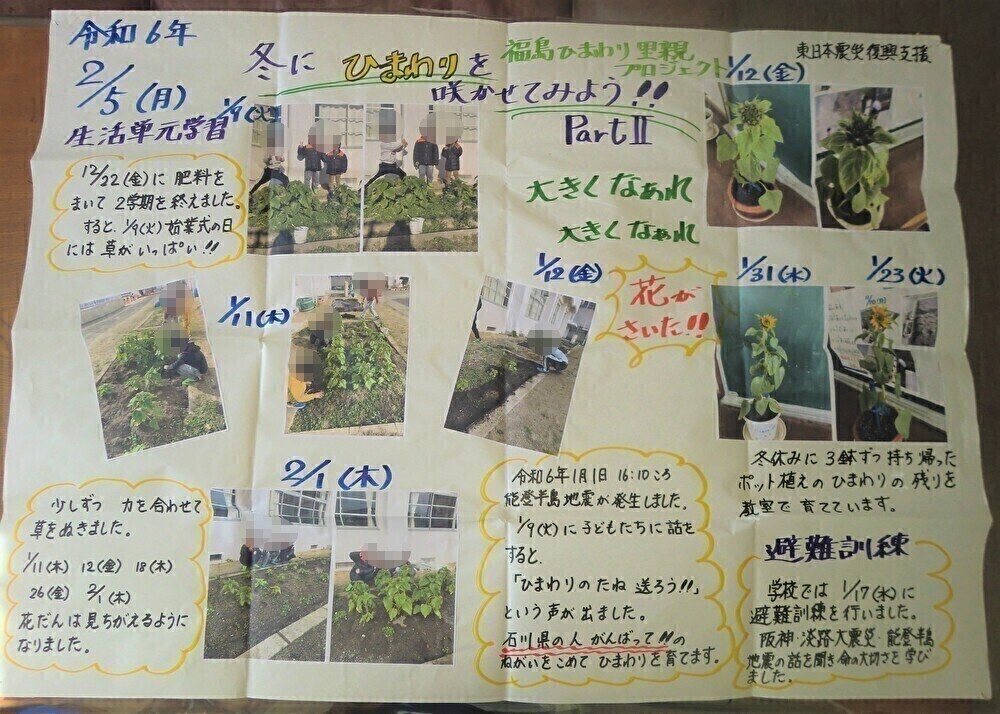 令和6年
2/5(月)
生活単元学習
冬に ひまわりを
咲かせてみよう!!
Part II
福島ひまわり里親
プロジェクト
東日本震災復興支援
1/9(火)
12/22(金)に 肥料を
まいて 2学期を 終えました。
すると、1/9(火)始業式の日
には 草がいっぱい!!
大きくなぁれ
大きくなぁれ
1/12(金)
1/11(木)
1/12(金)
花が
さいた!!
1/31(水)
1/23(火)
冬休みに 3鉢ずつ 持ち帰った
ポット植えのひまわりの 残りを
教室で 育てています。
2/1(木)
少しずつ 力を合わせて
草をぬきました。
1/11(木) 12(金) 18(木)
26(金) 2/1(木)
花だんは 見ちがえるように
なりました。
令和6年1月1日 16:10ころ
能登半島地震が発生しました。
1/9(火)に子どもたちに 話を
すると、
「ひまわりのたね 送ろう!!」
という声が出ました。
石川県の人 がんばって!!の
ねがいをこめて ひまわりを育てます。
避難訓練
学校では 1/17(水)に
避難訓練を行いました。
阪神・淡路大震災・能登半島
地震の話を聞き 命の大切さを学び
ました。